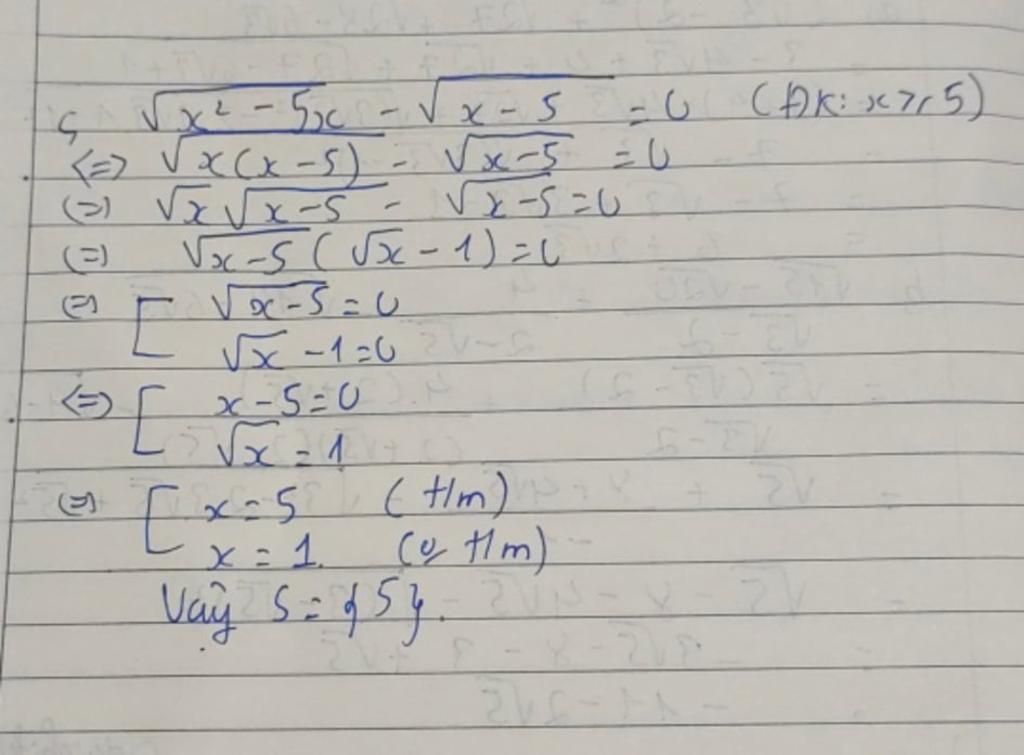 c, √(x² - 5x) - √(x - 5) = 0 (ĐK: x ≥ 5)
<=> √(x(x - 5)) - √(x-5) = 0
(=) √x √(x-5) - √(x-5) = 0
(=) √(x-5) (√x - 1) = 0
(=) [ √(x-5) = 0
√x - 1 = 0
<=> [ x - 5 = 0
√x = 1
(=) [ x = 5 (t/m)
x = 1. (o t/m)
Vậy S = {5}.